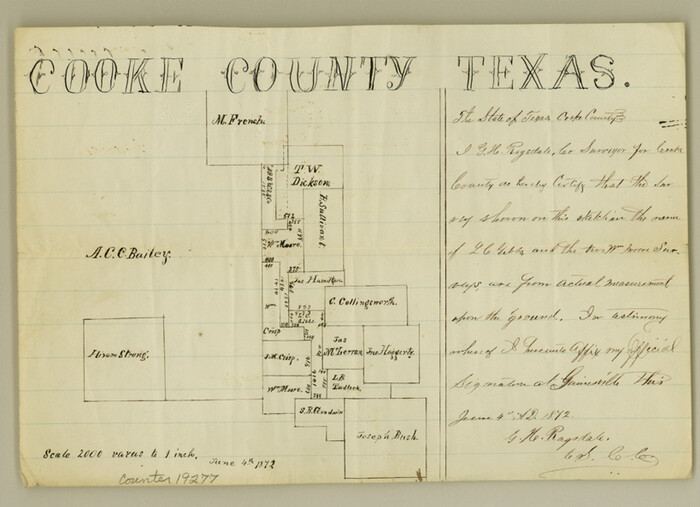 COOKE COUNTY TEXAS.
M. French.
T. W.
Dickson
E. Sullivant
Wm Moore.
A. C. C. Bailey.
Jas Hamilton
C. Collingsworth.
Crisp
Hiram Strong.
Jas
Jno Haggerty.
Crisp.
Wm Moore.
L B
S. B. Goodwin
Joseph Bush.
Scale 2000 varas to 1 inch. June 4th 1872
counter 19277
The State of Texas Cooke County
I G. H. Ragsdale, Co Surveyor for Cooke
County do hereby Certify that the Sur
vey shown on this sketch in the name
of and the two Wm Moore Sur-
veys, are from actual measurement
upon the ground. In testimony
whereof I hereunto affix my Official
Signature at Gainesville this
June 4th A.D. 1872.
G. H. Ragsdale.
C. S. C. C.